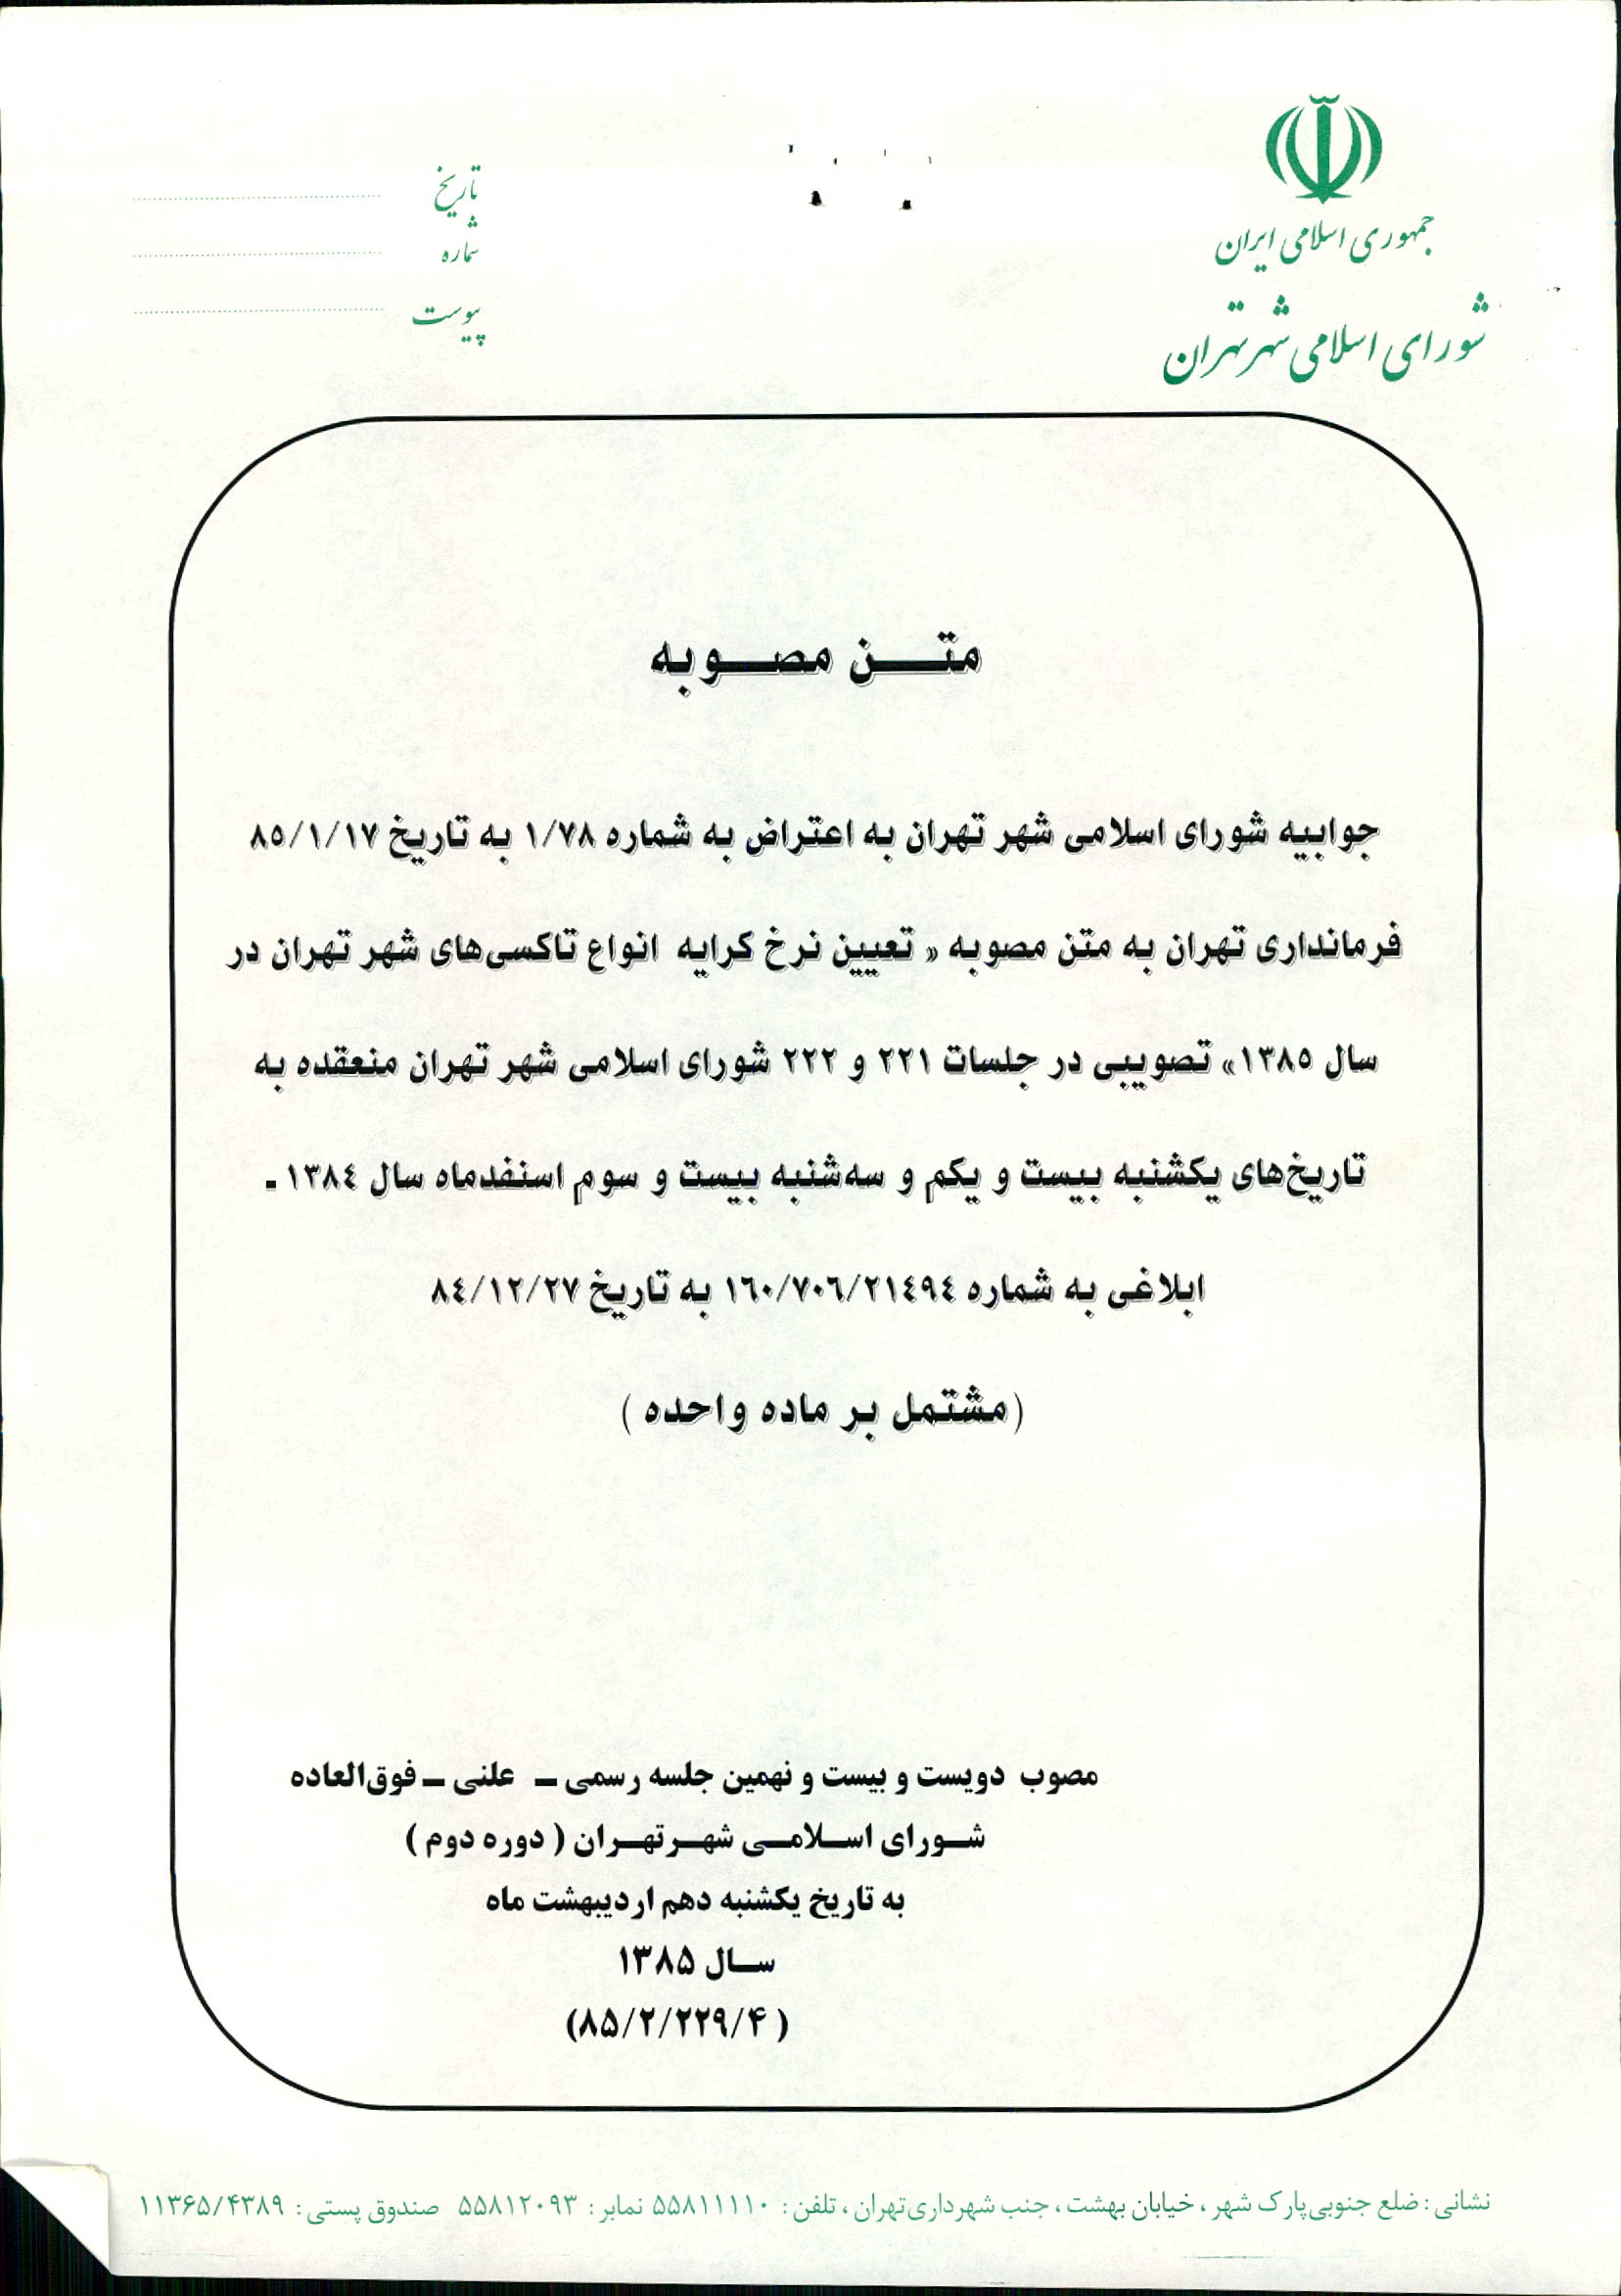 جمهوری اسلامی ایران
شورای اسلامی شهر تهران
تاریخ
شماره
پیوست
متن مصوبه
جوابیه شورای اسلامی شهر تهران به اعتراض به شماره ۱/۷۸ به تاریخ ۸۵/۱/۱۷
فرمانداری تهران به متن مصوبه « تعیین نرخ کرایه انواع تاکسی‌های شهر تهران در
سال ۱۳۸۵» تصویبی در جلسات ۲۲۱ و ۲۲۲ شورای اسلامی شهر تهران منعقده به
تاریخ‌های یکشنبه بیست و یکم و سه‌شنبه بیست و سوم اسنفدماه سال ۱۳۸٤ -
ابلاغی به شماره ۱٦۰/۷۰٦/۲۱٤۹٤ به تاریخ ۸٤/۱۲/۲۷
(مشتمل بر ماده واحده )
مصوب دویست و بیست و نهمین جلسه رسمی – علنی – فوق‌العاده
شورای اسلامی شهر تهران ( دوره دوم )
به تاریخ یکشنبه دهم اردیبهشت ماه
سال ۱۳۸۵
(۸۵/۲/۲۲۹/۴ )
نشانی : ضلع جنوبی پارک شهر ، خیابان بهشت ، جنب شهرداری تهران ، تلفن : ۵۵۸۱۱۱۱۰ نمابر : ۵۵۸۱۲۰۹۳ صندوق پستی : ۱۱۳۶۵/۴۳۸۹